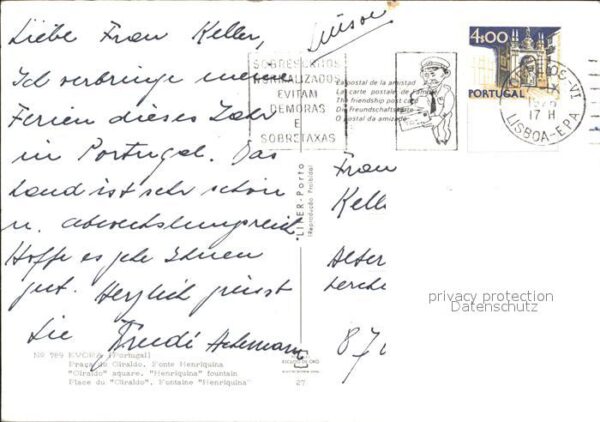 Liebe Frau Keller,
Ich verbringe meine
Ferien dieses Jahr
in Portugal. Das
Land ist sehr schön
u. abwechslungsreich
Hoffe es geht Ihnen
gut. Herzlich grüsst
Sie Trudi
SOBRESCRITOS
NORMALIZADOS
EVITAM
DEMORAS
E
SOBRETAXAS
La postal de la amistad
La carte postale de l'amitié
The friendship post card
Die Freundschaftskarte
O postal da amizade
4$00
PORTUGAL
17 H
LISBOA-EPA
"LIFER"-Porto
(Reprodução Proibida)
Frau
Kell
Alter
Lerche
870
privacy protection
Datenschutz
Nº 789 EVORA (Portugal)
Praça do Giraldo. Fonte Henriquina
"Giraldo" square. "Henriquina" fountain
Place du "Giraldo". Fontaine "Henriquina"
27